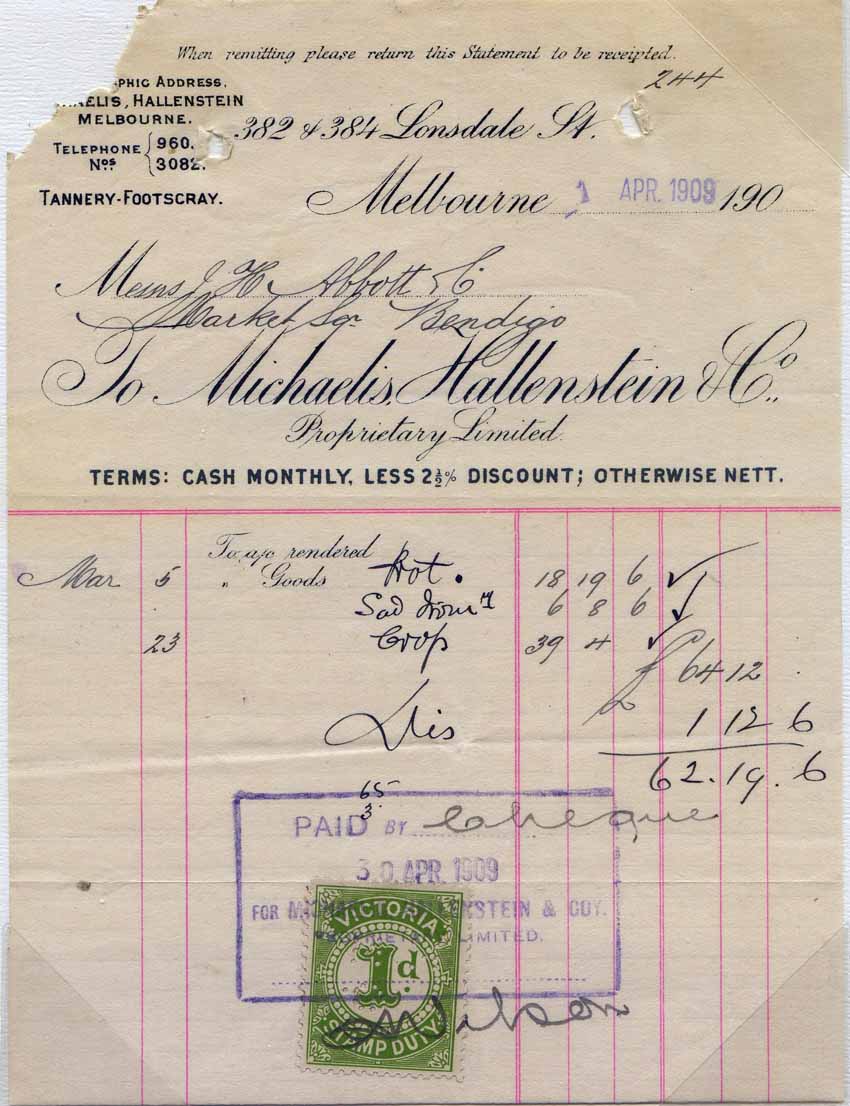 When remitting please return this Statement to be receipted.
244
PHIC ADDRESS,
AELIS, HALLENSTEIN
MELBOURNE.
TELEPHONE Nos 960. 3082.
TANNERY-FOOTSCRAY.
382 & 384 Lonsdale St.
Melbourne 1 APR. 1909 190
Messrs J. H. Abbott & Co
Market Sqr Bendigo
To Michaelis, Hallenstein & Co.,
Proprietary Limited.
TERMS: CASH MONTHLY, LESS 2½% DISCOUNT; OTHERWISE NETT.
To a/c rendered
Mar 5 " Goods 18 19 6
6 8 6
23 Crop 39 4
£ 64 12
Dis 1 12 6
62.19.6
65
3
PAID BY Cheque
30 APR. 1909
FOR MICHAELIS HALLENSTEIN & COY.
PROPRIETARY LIMITED.
VICTORIA
1d.
STAMP DUTY
Wilson